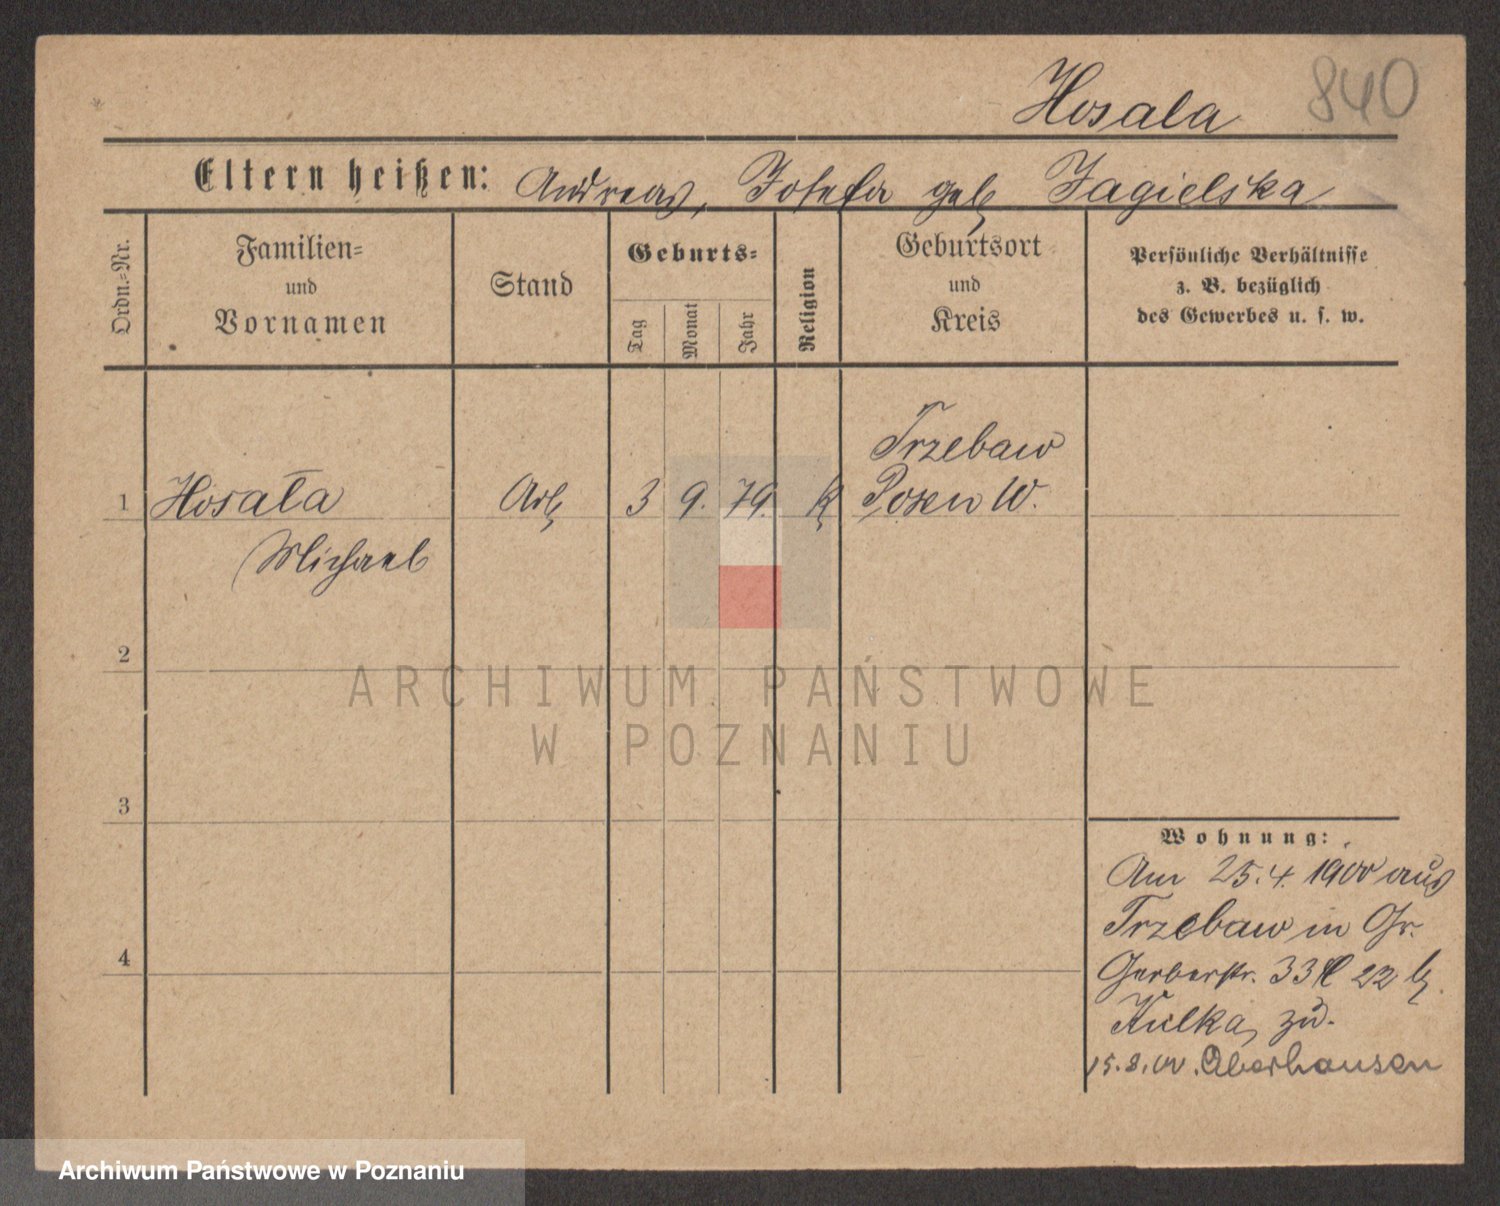 Hosala 840
Eltern heißen: Andreas, Josefa geb Jagielska
Ordn.=Nr.
Familien=
und
Vornamen
Stand
Geburts=
Tag
Monat
Jahr
Religion
Geburtsort
und
Kreis
Persönliche Verhältnisse
z. B. bezüglich
des Gewerbes u. s. w.
Trzebaw
1 Hosała Arb 3 9. 79. K Posen W.
Michael
2
ARCHIWUM PAŃSTWOWE
W POZNANIU
3
Wohnung:
Am 25.4. 1900 aus
4
Trzebaw in Gr.
Gerberstr. 33 22 b.
Kulka zu.
15.8.00. Oberhausen
Archiwum Państwowe w Poznaniu